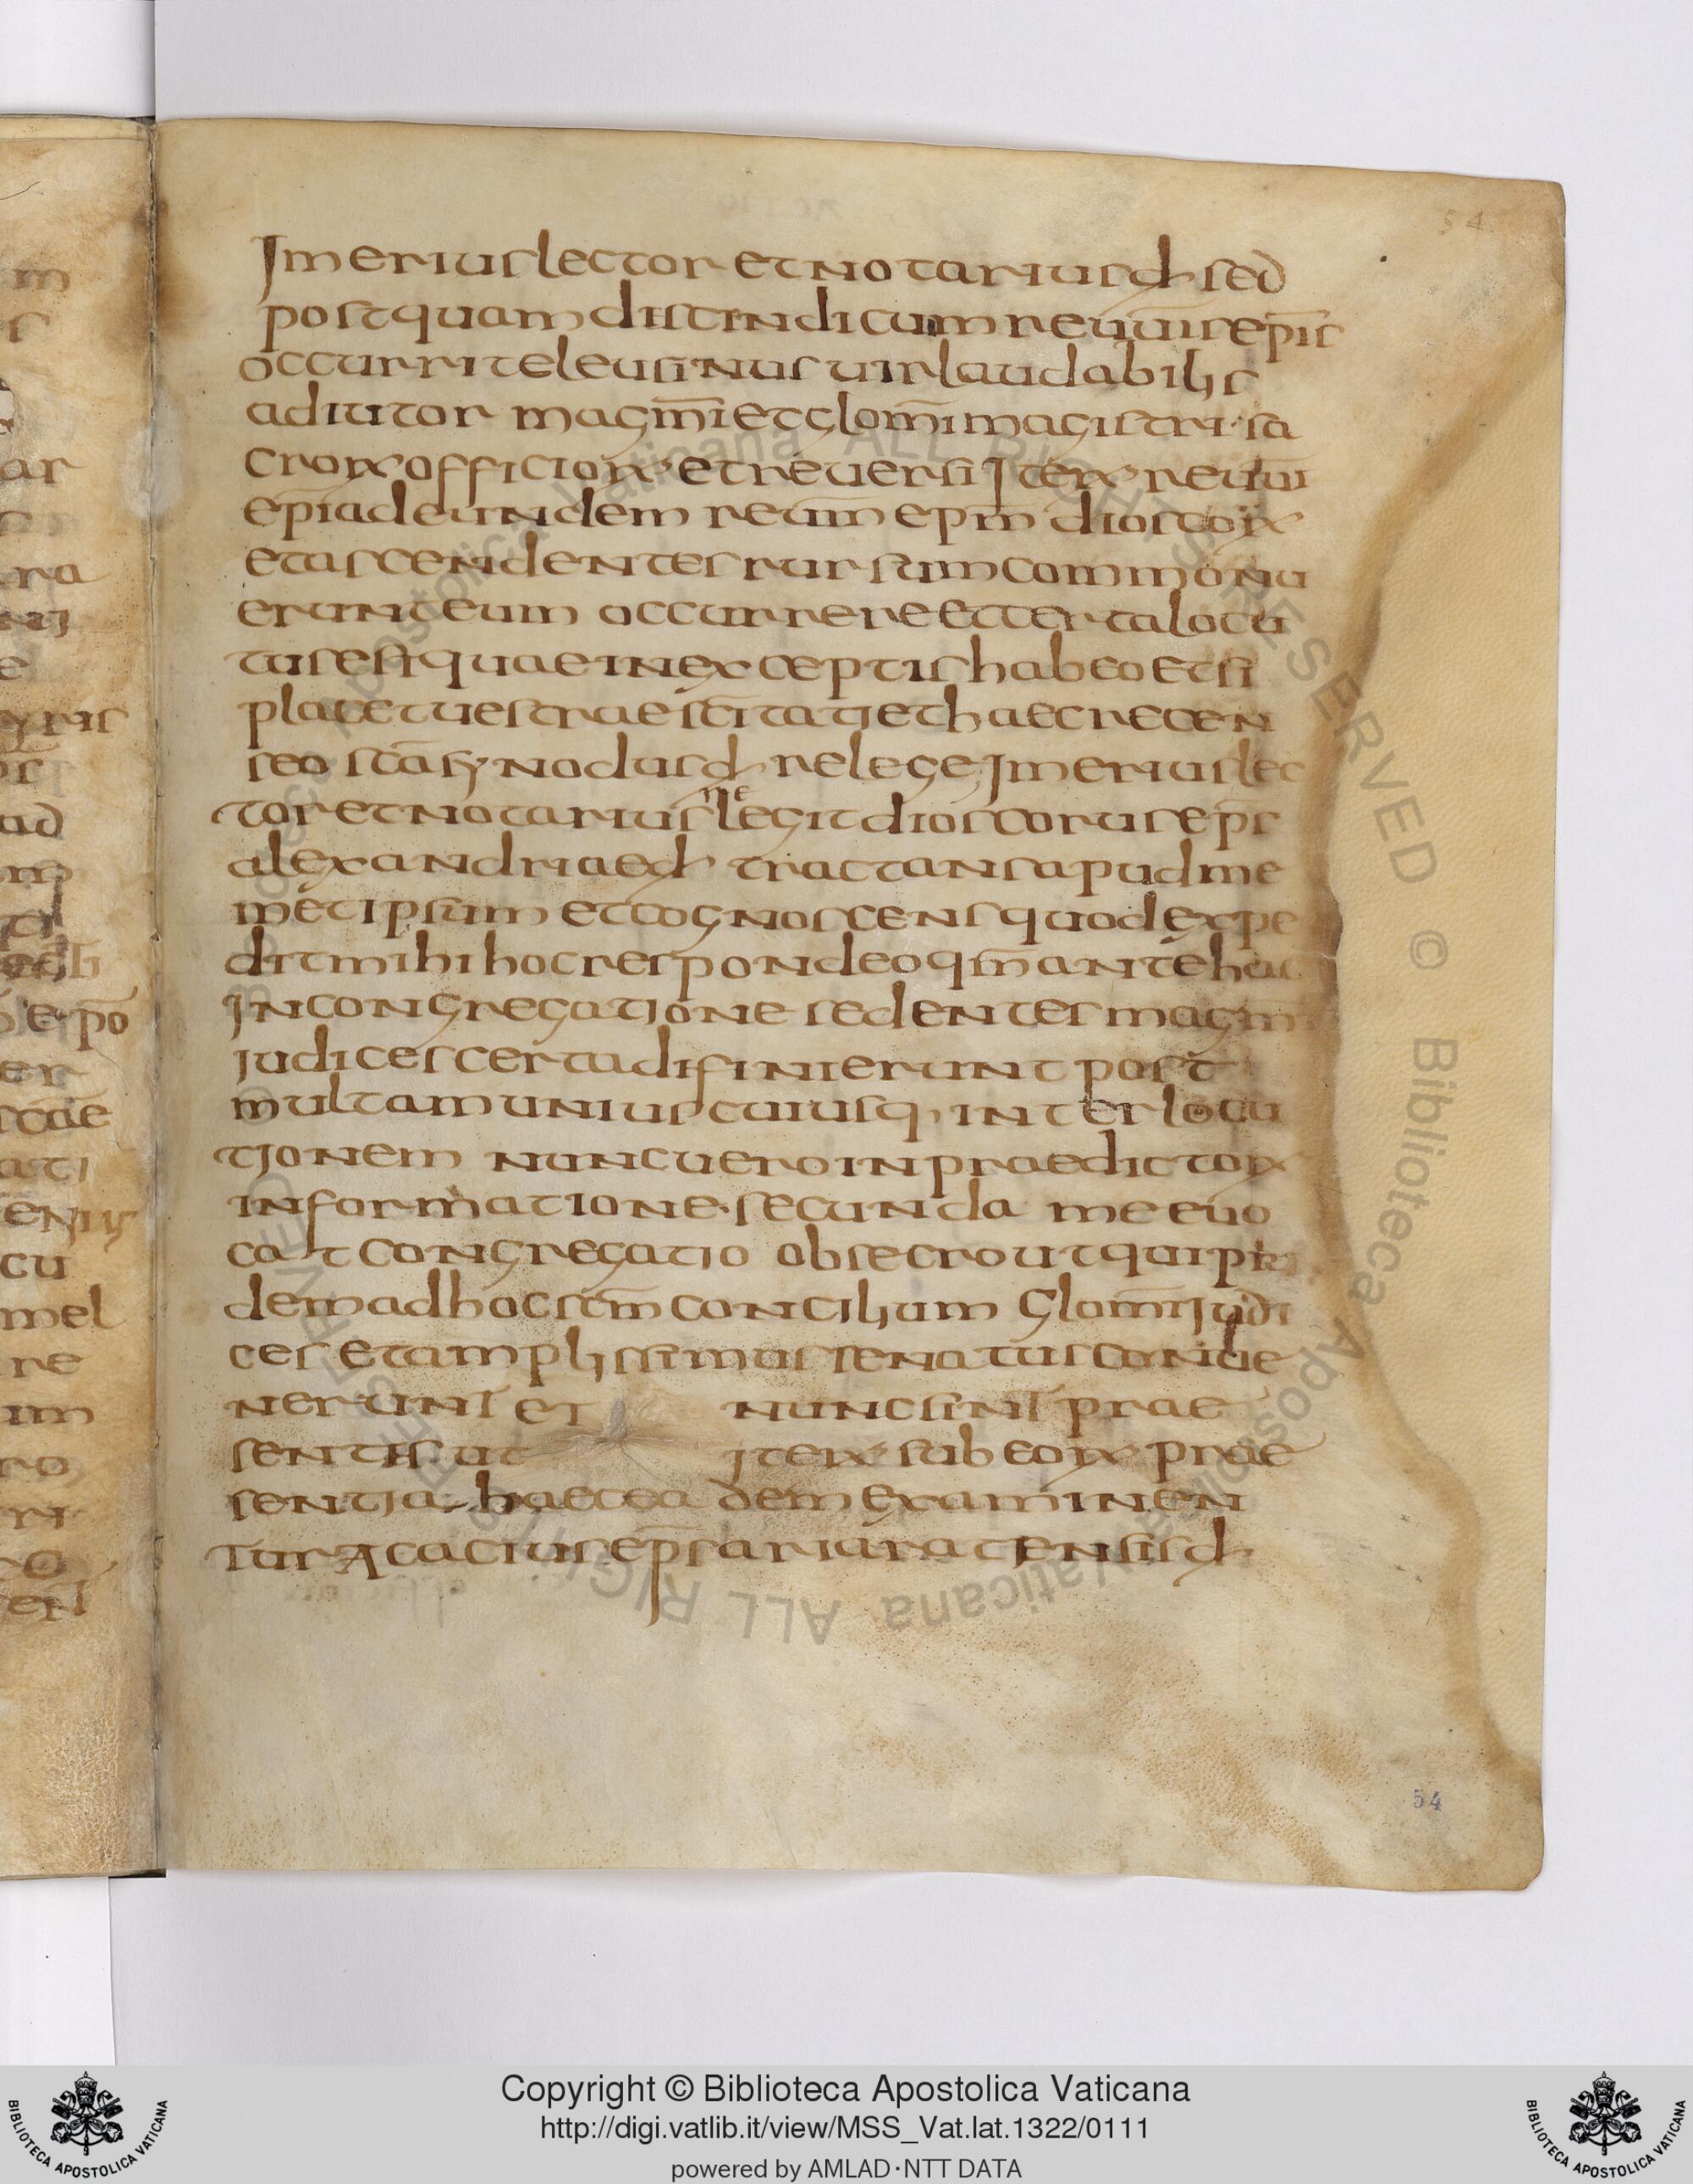 Imerius lector et notarius d̄ sed
postquam distindicum reuūis ep̄is
occurrit eleusinus uir laudabilis
adiutor magm̄i et glom̄i magistri sa
croꝝ officioꝝ et reuersi Iteꝝ reuūi
ep̄i ad eundem reūm ep̄m diosto&#42813;
et ascendentes rursum commonu
erunt eum occurrere et certa locu
tus est quae in exceptis habeo et si
placet uestrae sc̄itati et haec recen
seo sc̄a sy̓nodus d̄ relege Imerius lec
tor et notarius relegit dioscorus ep̄s
alexandriae d̄ tractans apud me
met ipsum et cognoscens quod expe
dit mihi hoc respondeo qm̄ ante hac
In congregatione sedentes magm̄
iudices certa difinierunt post
multam unius cuiusq, interlocu
tionem nunc uero in praedictoꝝ
informatione secunda me euo
cat congregatio obsecro ut qui pri
dem ad hoc sc̄m concilium glom̄i iudi
ces et amplissimus senatus conue
nerunt et nunc sint prae
sentes ut iteꝝ sub eoꝝ prae
sentia haec eadem examinen
tur Acacius ep̄s ariaratensis d̄
54
54
m
s
ar
ra
e
ad
e po
er
scae
ati
enus
cu
mel
re
im
ro
ri
ent
Copyright © Biblioteca Apostolica Vaticana
http://digi.vatlib.it/view/MSS_Vat.lat.1322/0111
powered by AMLAD·NTT DATA
BIBLIOTECA APOSTOLICA VATICANA
BIBLIOTECA APOSTOLICA VATICANA
© Biblioteca Apostolica Vaticana ALL RIGHTS RESERVED © Biblioteca Apostolica Vaticana ALL RIGHTS RESERVED